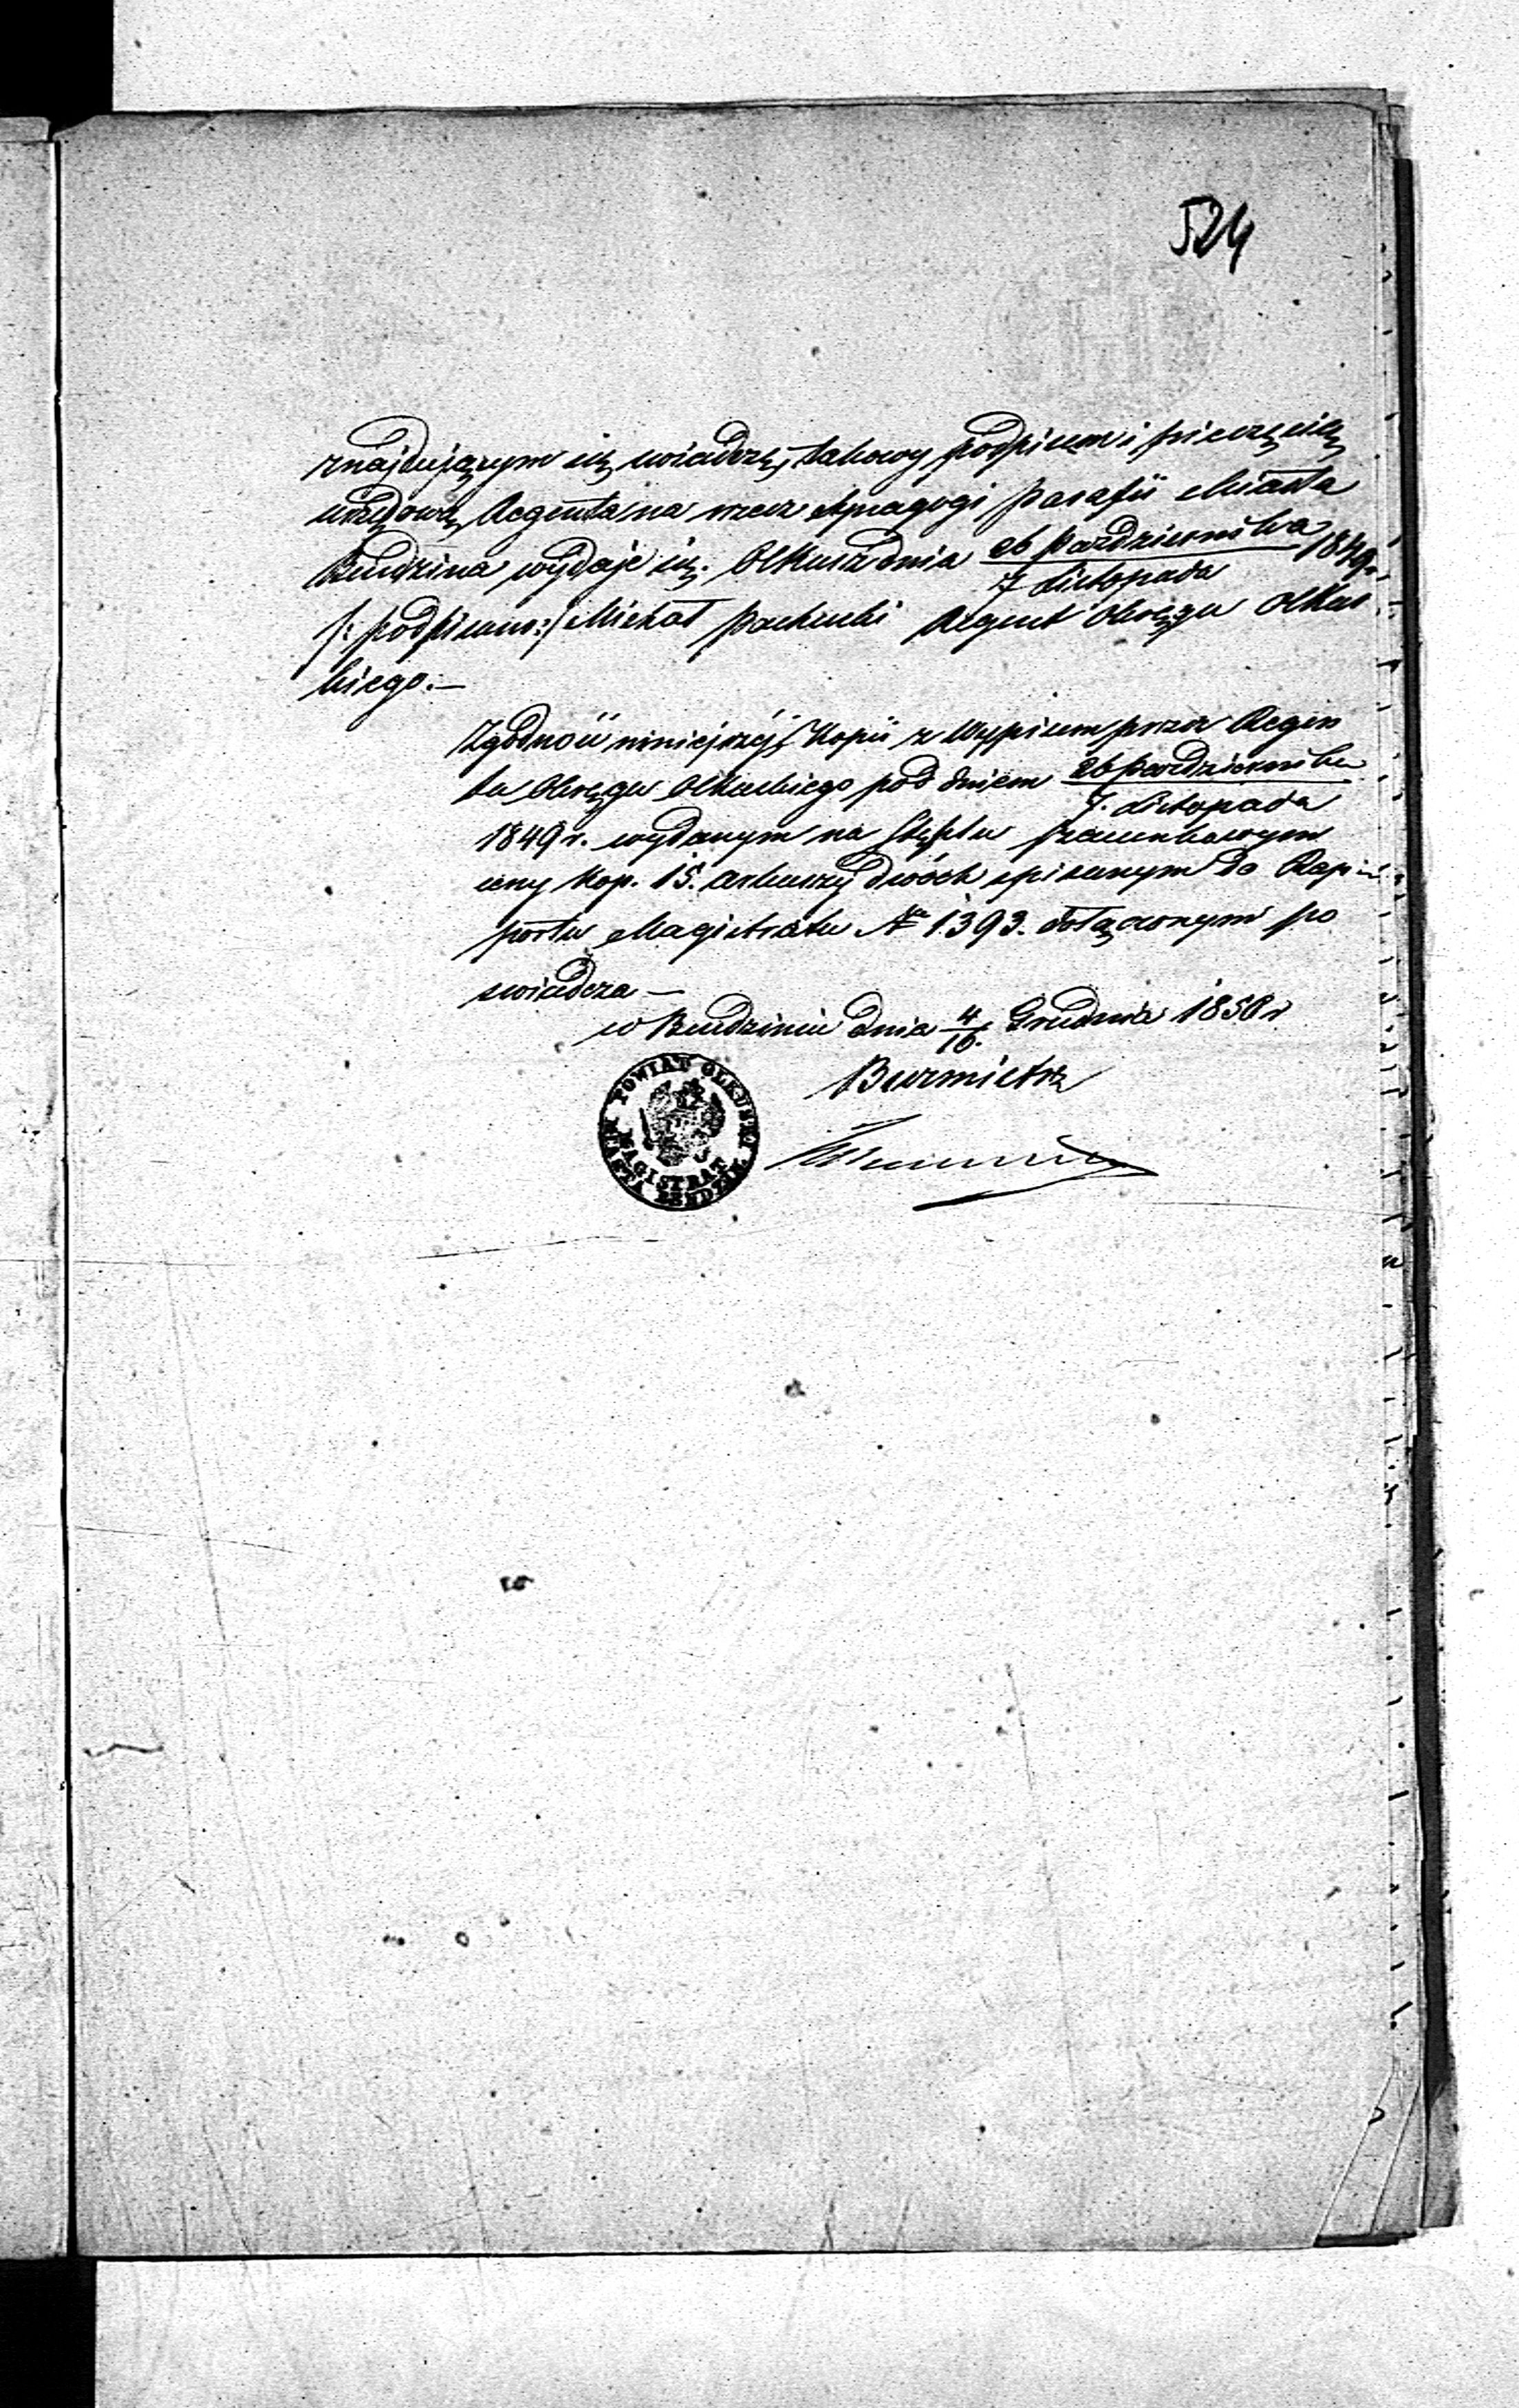 524
znajdującym się, uwiadcza, takowy podpisem i pieczęcią
urzędową Regenta na rzecz Synagogi parafii Miasta
Bendzina wydaje się. Olkusz dnia 26 Października 1849 r.
7 Listopada
/: podpisano :/ Michał Regent Okręgu Olkus
kiego. —
Zgodność niniejszéj Kopii z Wypisem przez Regen
ta Okręgu Olkuskiego pod dniem 26 Października
7. Listopada
1849 r. wydanym na Stęplu szacunkowym
ceny kop. 15. arkuszy dwóch spisanym do Rap
portu Magistratu Nr 1393. dołączonym po
swiadcza —
w Bendzinie dnia 4/16. Grudnia 1850 r
Burmistrz
POWIAT OLKUSKI
MAGISTRAT
MIASTA BENDZIN